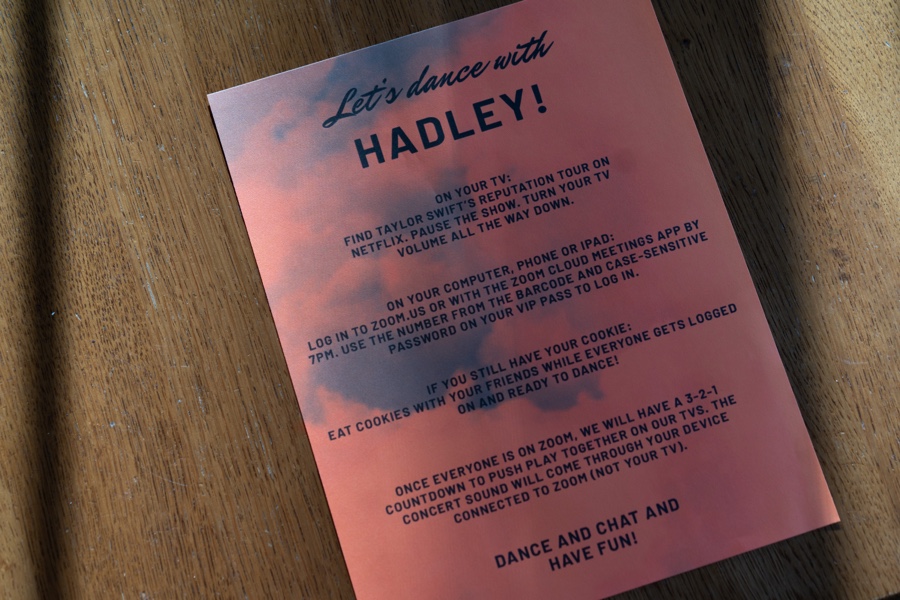 Let's dance with
HADLEY!
ON YOUR TV:
FIND TAYLOR SWIFT'S REPUTATION TOUR ON
NETFLIX. PAUSE THE SHOW. TURN YOUR TV
VOLUME ALL THE WAY DOWN.
ON YOUR COMPUTER, PHONE OR IPAD:
LOG IN TO ZOOM.US OR WITH THE ZOOM CLOUD MEETINGS APP BY
7PM. USE THE NUMBER FROM THE BARCODE AND CASE-SENSITIVE
PASSWORD ON YOUR VIP PASS TO LOG IN.
IF YOU STILL HAVE YOUR COOKIE:
EAT COOKIES WITH YOUR FRIENDS WHILE EVERYONE GETS LOGGED
ON AND READY TO DANCE!
ONCE EVERYONE IS ON ZOOM, WE WILL HAVE A 3-2-1
COUNTDOWN TO PUSH PLAY TOGETHER ON OUR TVS. THE
CONCERT SOUND WILL COME THROUGH YOUR DEVICE
CONNECTED TO ZOOM (NOT YOUR TV).
DANCE AND CHAT AND
HAVE FUN!